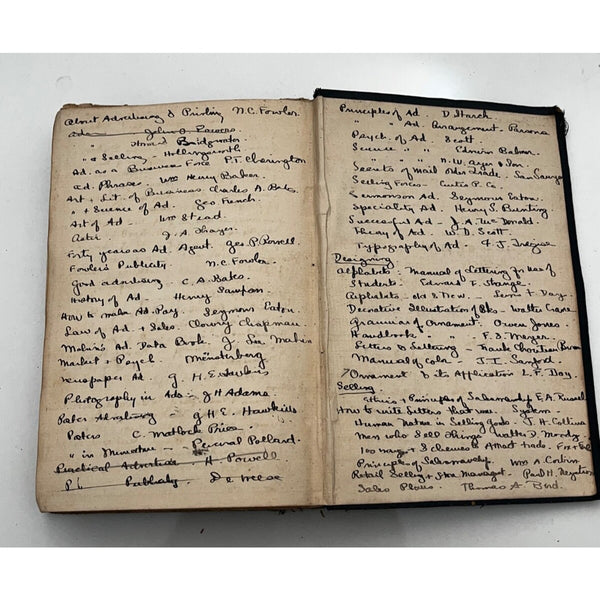 About Advertising & Printing N.C. Fowler.
Ads John O. Powers.
" Howard Bridgewater
" & Selling Hollingworth
Ad. as a Business Force P.T. Cherington
Ad. Phrases Wm Henry Baker.
Art & Sct. of Business Charles A. Bates.
" & Science of Ad. Geo French.
Art of Ad - Wm Stead.
J. A. Thayer.
Forty years as Ad. Agent. Geo P. Rowell.
Fowler's Publicity. N.C. Fowler.
Good advertising - C. A. Bates.
History of Ad - Henry Sampson.
How to make Ad. Pay. Seymour Eaton.
Law of Ad. & Sales. Clowry Chapman.
Mahin's Ad. Data Book. J. Lee Mahin
Market & Psych. Münsterberg
Newspaper Ad. G. H. E. Hawkins
Photography in Ads - J H Adams.
Poster Advertising G H E. Hawkins
Posters C. Matlock Price.
" in Miniature - Percival Pollard.
Practical Advertising - H Powell
Publicity. De Weese
Principles of Ad. D. Starch.
" Ad Arrangement. Parsons
Psych. of Ad. Scott.
" " Edwin Balmer.
" " N.W. Ayer & Son.
Secrets of Mail Order Trade.
Selling Forces - Curtis P. Co.
Sermons on Ad. Seymour Eaton.
Speciality Ad. Henry S. Bunting
Successful Ad - J. A. McDonald.
Theory of Ad. W. D. Scott.
Typography of Ad - F. J. Trezise
Designing
Alphabets - Manual of Lettering for Use of
Students. Edward F. Strange.
Alphabets - old & New. Lewis F. Day.
Decorative Illustration of Bks - Walter Crane.
Grammar of Ornament. Owen Jones.
Handbook " " F. S. Meyer.
Letters & Lettering - Frank Chouteau Brown
Manual of Color - J. I. Sanford.
Ornament & its Application L. F. Day.
Selling
Ethics & Principles of Salesmanship E. A. Russell
How to write letters that win. System -
Human Nature in Selling Goods. J. H. Collins
Men who sell things Walter D. Moody.
100 ways & Schemes to Attract trade.
Principles of Salesmanship. Wm A. Corbin
Retail Selling & Store Managet - Paul H. Neystrom
Sales Plans. Thomas A. Bird.